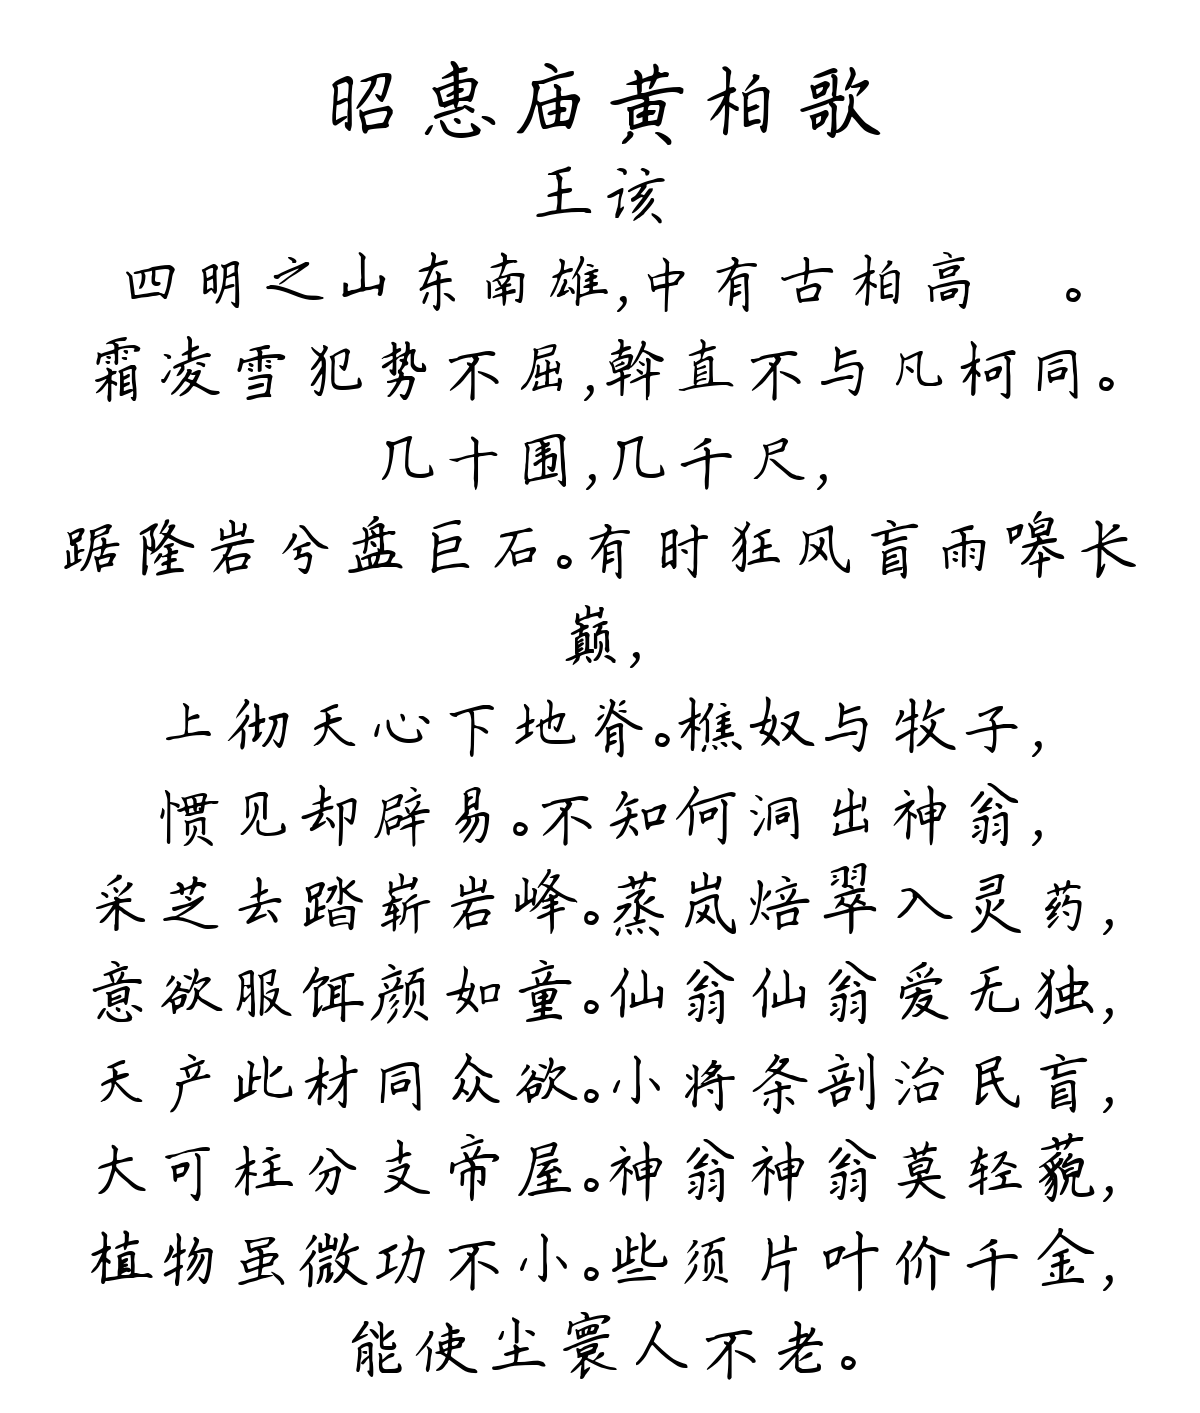 昭惠庙黄柏歌
王该
四明之山东南雄,中有古柏高　。
霜凌雪犯势不屈,斡直不与凡柯同。
几十围,几千尺,
踞隆岩兮盘巨石。有时狂风盲雨嗥长
巅,
上彻天心下地脊。樵奴与牧子,
惯见却辟易。不知何洞出神翁,
采芝去踏崭岩峰。蒸岚焙翠入灵药,
意欲服饵颜如童。仙翁仙翁爱无独,
天产此材同众欲。小将条剖治民盲,
大可柱分支帝屋。神翁神翁莫轻藐,
植物虽微功不小。些须片叶价千金,
能使尘寰人不老。